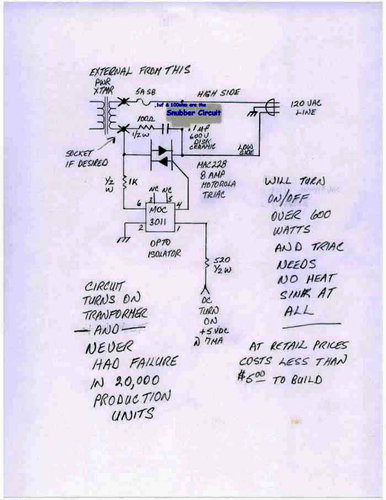 EXTERNAL FROM THIS
PWR
XTMR
5A SB
.1uf & 100ohm are the
Snubber Circuit
HIGH SIDE
120 VAC
LINE
100Ω
1/2 W
.1 MF
600 V
DISK
CERAMIC
LOW SIDE
SOCKET
IF DESIRED
MAC228
8 AMP
MOTOROLA
TRIAC
1/2
W
1K
NC NC
6 5 4
MOC
3011
1 2
OPTO
ISOLATOR
520
1/2 W
DC
TURN
ON
+5VDC
@ 7MA
WILL TURN
ON/OFF
OVER 600
WATTS
AND TRIAC
NEEDS
NO HEAT
SINK AT
ALL
CIRCUIT
TURNS ON
TRANFORMER
-AND-
NEVER
HAD FAILURE
IN 20,000
PRODUCTION
UNITS
AT RETAIL PRICES
COSTS LESS THAN
$5.00 TO BUILD